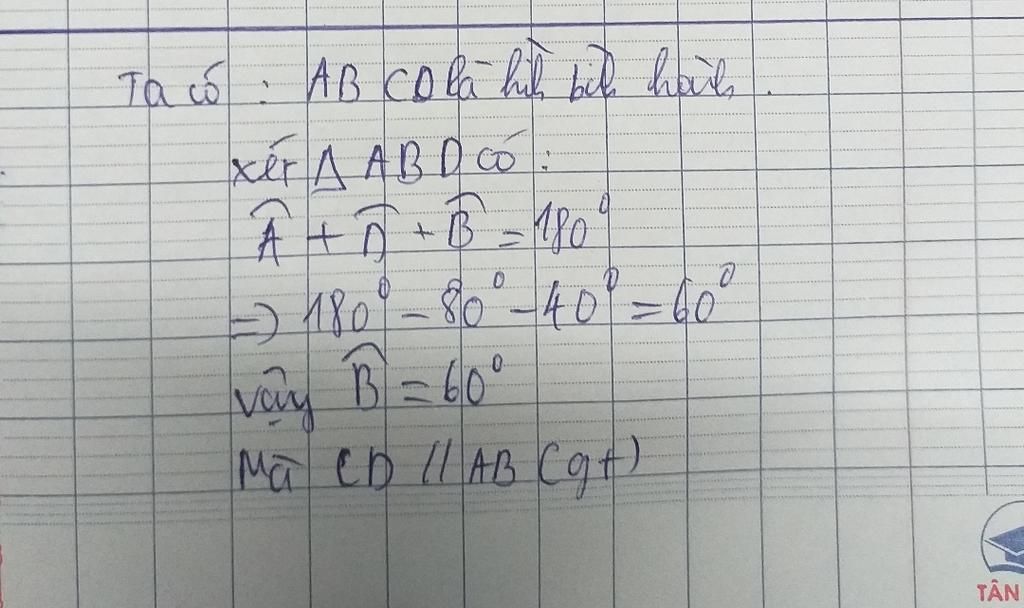 Ta có : ABCD là hìh bìh hàh.
xét Δ ABD có :
\widehat{A} + \widehat{D} + \widehat{B} = 180⁰
=> 180⁰ - 80⁰ - 40⁰ = 60⁰
vậy \widehat{B} = 60⁰
Mà CD // AB (gt)
TÂN